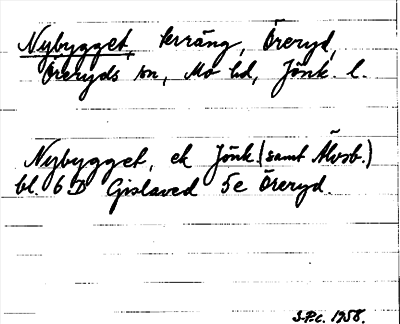 Nybygget, terräng, Öreryd,
Öreryds sn, Mo hd, Jönk. l.
Nybygget, ek Jönk. (samt Älvsb.)
bl. 6 D Gislaved 5e Öreryd.
S.P.c. 1958.